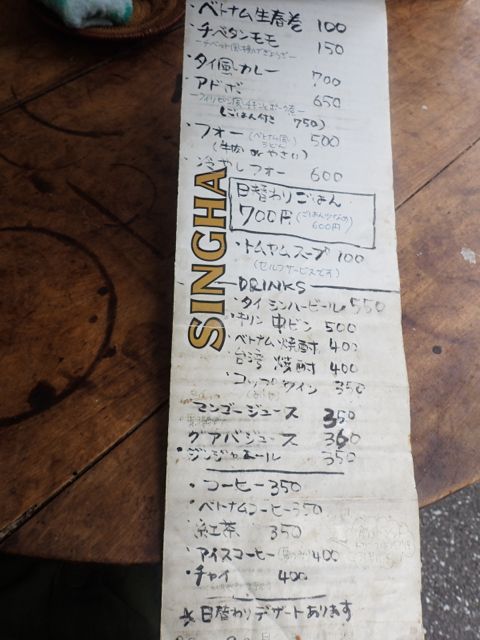 ・ベトナム生春巻 100
・チベタンモモ 150
ーチベット風揚げぎょうざー
・タイ風カレー 700
・アドボ 650
ーフィリピン風
(ごはん付き 750)
・フォー (ベトナム風うどん) 500
(牛肉 or やさい)
・冷やしフォー 600
日替わりごはん
700円 (ごはん少なめ 600円)
・トムヤムスープ 100
(セルフサービスです)
DRINKS
・タイシンハービール 550
・キリン中ビン 500
・ベトナム焼酎 400
・台湾焼酎 400
・コップワイン 350
・マンゴージュース 350
グアバジュース 360
・ジンジャエール 350
・コーヒー 350
・ベトナムコーヒー 350
・紅茶 350
・アイスコーヒー 400
・チャイ 400
※日替わりデザートあります
SINGHA